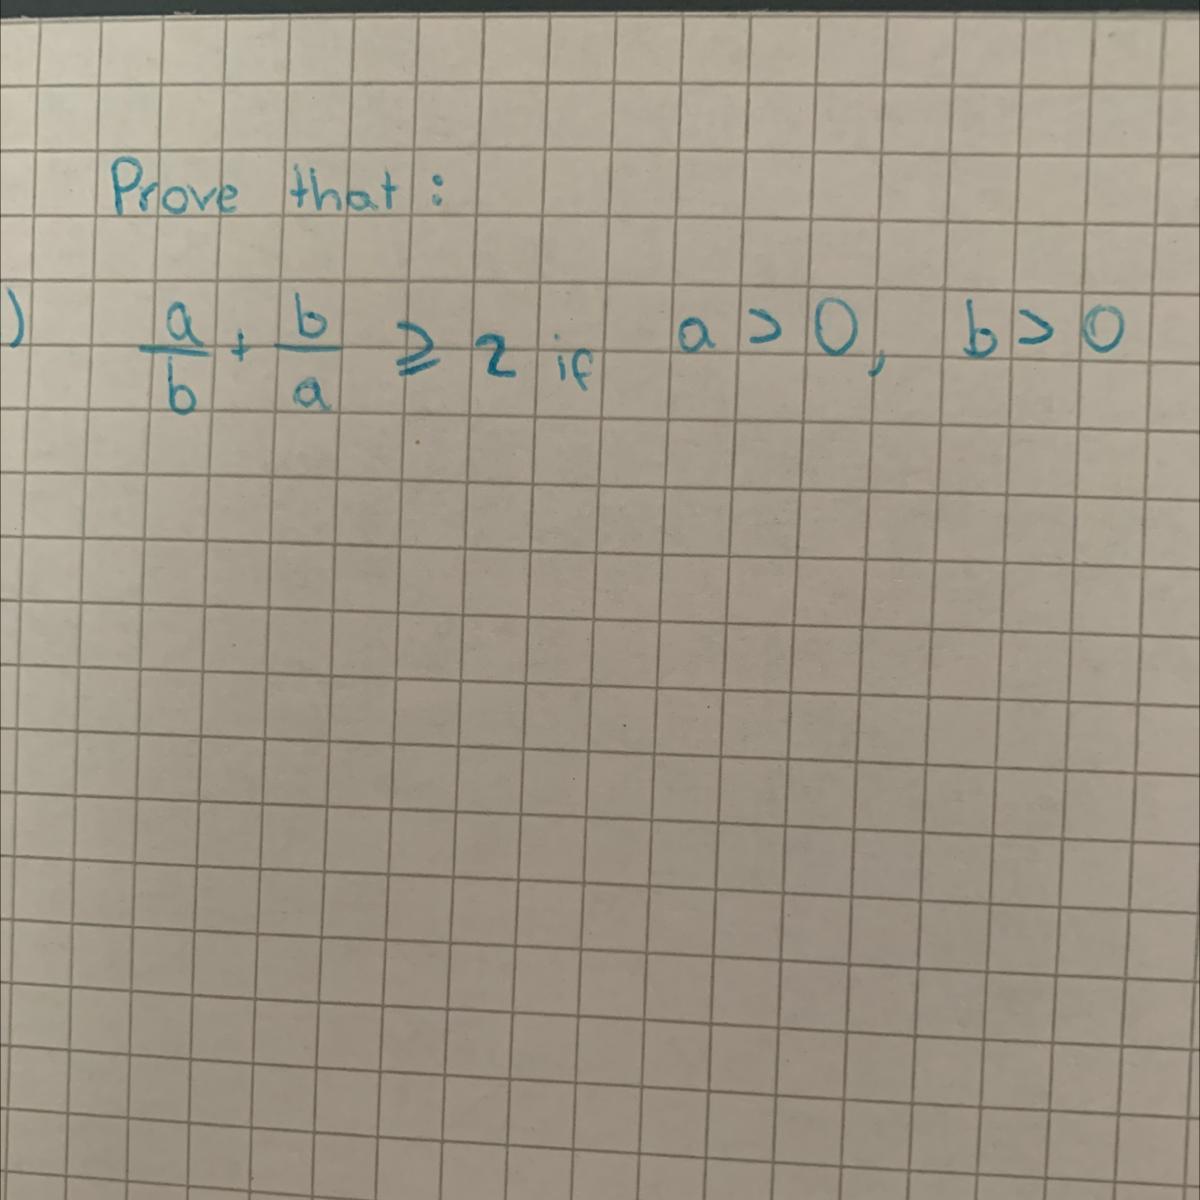 Prove that:
) a/b + b/a ⩾ 2 if a > 0, b > 0